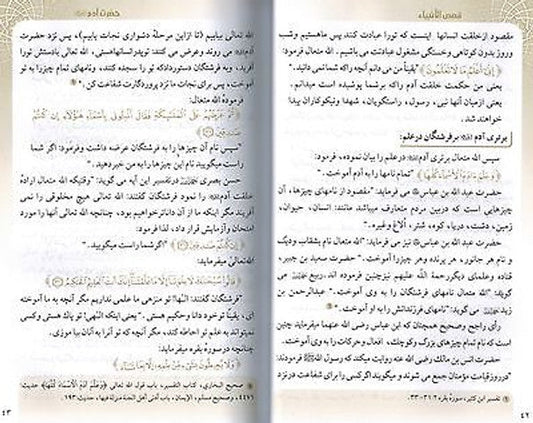 قصص الأنبياء
مقصود ازخلقت انسانها اینست که تورا عبادت کنند پس ماهستیم وشب
وروز بدون کوتاهی وخستگی مشغول عبادتت می باشیم . الله متعال فرمود:
﴿إِنِّي أَعْلَمُ مَا لَا تَعْلَمُونَ﴾ "یقیناً من می دانم آنچه راکه شما نمی دانید."
یعنی من حکمت خلقت آدم راکه برشما پوشیده است میدانم .
یعنی ازمیان آنها نبی، رسول، راستگویان، شهدا ونیکوکاران پیدا
خواهند شد.
برتری آدم بر فرشتگان درعلم:
سپس الله متعال برتری آدم درعلم را بیان نموده، فرمود:
﴿وَعَلَّمَ آدَمَ الْأَسْمَاءَ كُلَّهَا﴾ "تمام نامها را به آدم آموخت."
حضرت عبد الله بن عباس می فرماید: "مقصود از نامهای چیزها، آن
چیزهایی است که دربین مردم متعارف میباشد مانند: انسان، حیوان،
زمین، دشت، دریا، کوه، شتر، اُلاغ وغیره."
حضرت عبدالله بن عباس نیز می فرماید: "الله متعال نام بشقاب ودیگ
و نام هر جانور، هر پرنده وهر چیزرا آموخت." حضرت سعید بن جبیر،
قتاده وعلمای دیگررحمة الله علیهم نیزچنین فرموده اند. ربیع
می گوید: "الله متعال نامهای فرشتگان را به وی آموخت." عبدالرحمن بن
زید می گوید: "نامهای فرزندانش را به او آموخت."
رأی راجح وصحیح همچنان که ابن عباس رضی الله عنهما میفرماید این
است که نام تمام چیزهای بزرگ وکوچک، افعال وحرکات را به وی آموخت.
حضرت انس بن مالک رضی الله عنه روایت میکند که رسول الله فرمودند:
"درروزقیامت مؤمنان جمع می شوند و میگویند اگرکسی را برای شفاعت در نزد
تفسیر ابن کثیر، سورۀ بقره ۲: ۳۱-۳۳.
۴۲
حضرت آدم
الله تعالی بیابیم (تا ازاین مرحلۀ دشواری نجات یابیم)، پس نزد حضرت
آدم می روند وعرض می کنند: توپدرانسانهاهستی. الله تعالی بادستش تورا
آفرید، به فرشتگان دستوردادکه تو را سجده کنند، ونامهای تمام چیزرا به تو
آموخت، پس برای نجات ما نزد پروردگارت شفاعت کن."
فرمودۀ الله متعال:
﴿ثُمَّ عَرَضَهُمْ عَلَى الْمَلَائِكَةِ فَقَالَ أَنْبِئُونِي بِأَسْمَاءِ هَؤُلَاءِ إِنْ كُنْتُمْ
صَادِقِينَ﴾
"سپس نام آن چیزها را به فرشتگان عرضه داشت وفرمود: اگر شما
راست میگویید نام این چیزها را به من خبردهید."
حسن بصری درتفسیر این آیه می گوید: "وقتیکه الله متعال ارادۀ
خلقت آدم را نمود فرشتگان گفتند: الله تعالی هیچ مخلوقی را نمی
آفریند مگر اینکه ما از آن داناترخواهیم بود، چنانچه الله تعالی آنها را مورد
امتحان وآزمایش قرار داد، لذا فرمود:
﴿إِنْ كُنْتُمْ صَادِقِينَ﴾ "اگر شما راست میگویید."
الله تعالی میفرماید:
﴿قَالُوا سُبْحَانَكَ لَا عِلْمَ لَنَا إِلَّا مَا عَلَّمْتَنَا إِنَّكَ أَنْتَ الْعَلِيمُ الْحَكِيمُ﴾
"فرشتگان گفتند: الٰهـا! تو منزهی ما علمی نداریم مگر آنچه به ما آموخته
ای، یقیناً تو خود دانا وحکیم هستی." یعنی اینکه الهی! تو پاک هستی وکسی
نمیتواند به علم تو احاطه کند، مگر آنچه که تو آنرا به آنان بیا موزی.
چنانچه درسورۀ بقره میفرماید:
﴿وَلَا يُحِيطُونَ بِشَيْءٍ مِنْ عِلْمِهِ إِلَّا بِمَا شَاءَ﴾
صحیح البخاری، کتاب التفسیر، باب قول الله تعالی (وَعَلَّمَ آدَمَ الْأَسْمَاءَ كُلَّهَا) حدیث:
۴۴۷۶، وصحیح مسلم، الإیمان، باب أدنی أهل الجنة منزلة فیها، حدیث: ۱۹۳.
۴۳